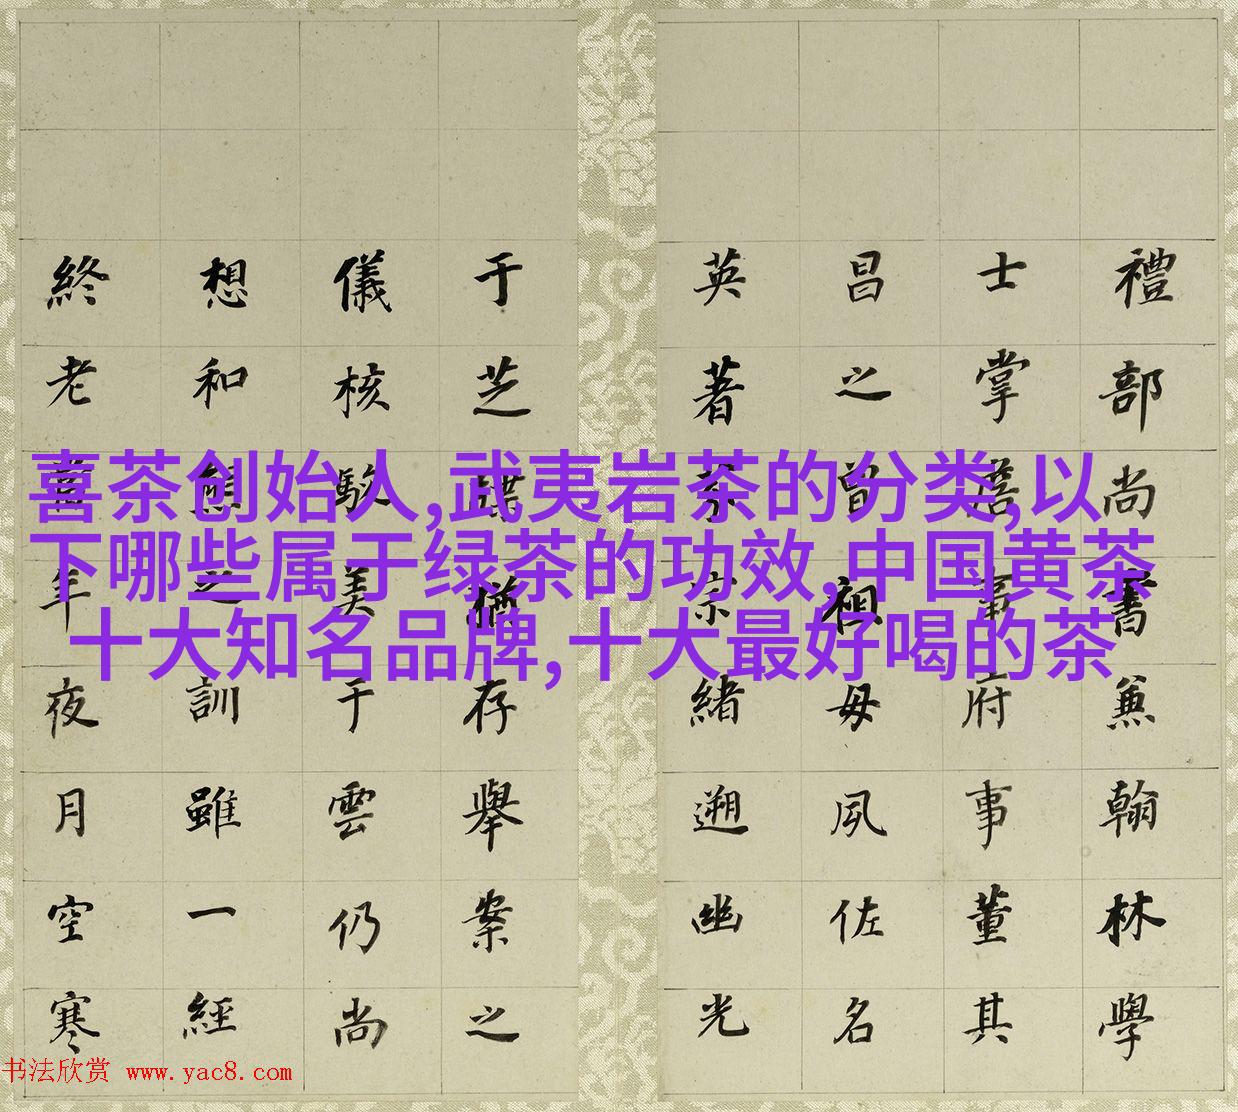 喜茶创始人,武夷岩茶的分类,以
下哪些属于绿茶的功效,中国黄茶
十大知名品牌,十大最好喝的茶
禮部尚書兼翰林學
士掌詹事府事董其
昌之曾祖毋夙佐名
英著宗緒遡幽光
于芝牒猶存舉案之
儀核駿美于雲仍尚
想和熊之訓雖一經
終老年夜月空寒
书法欣赏 www.yac8.com